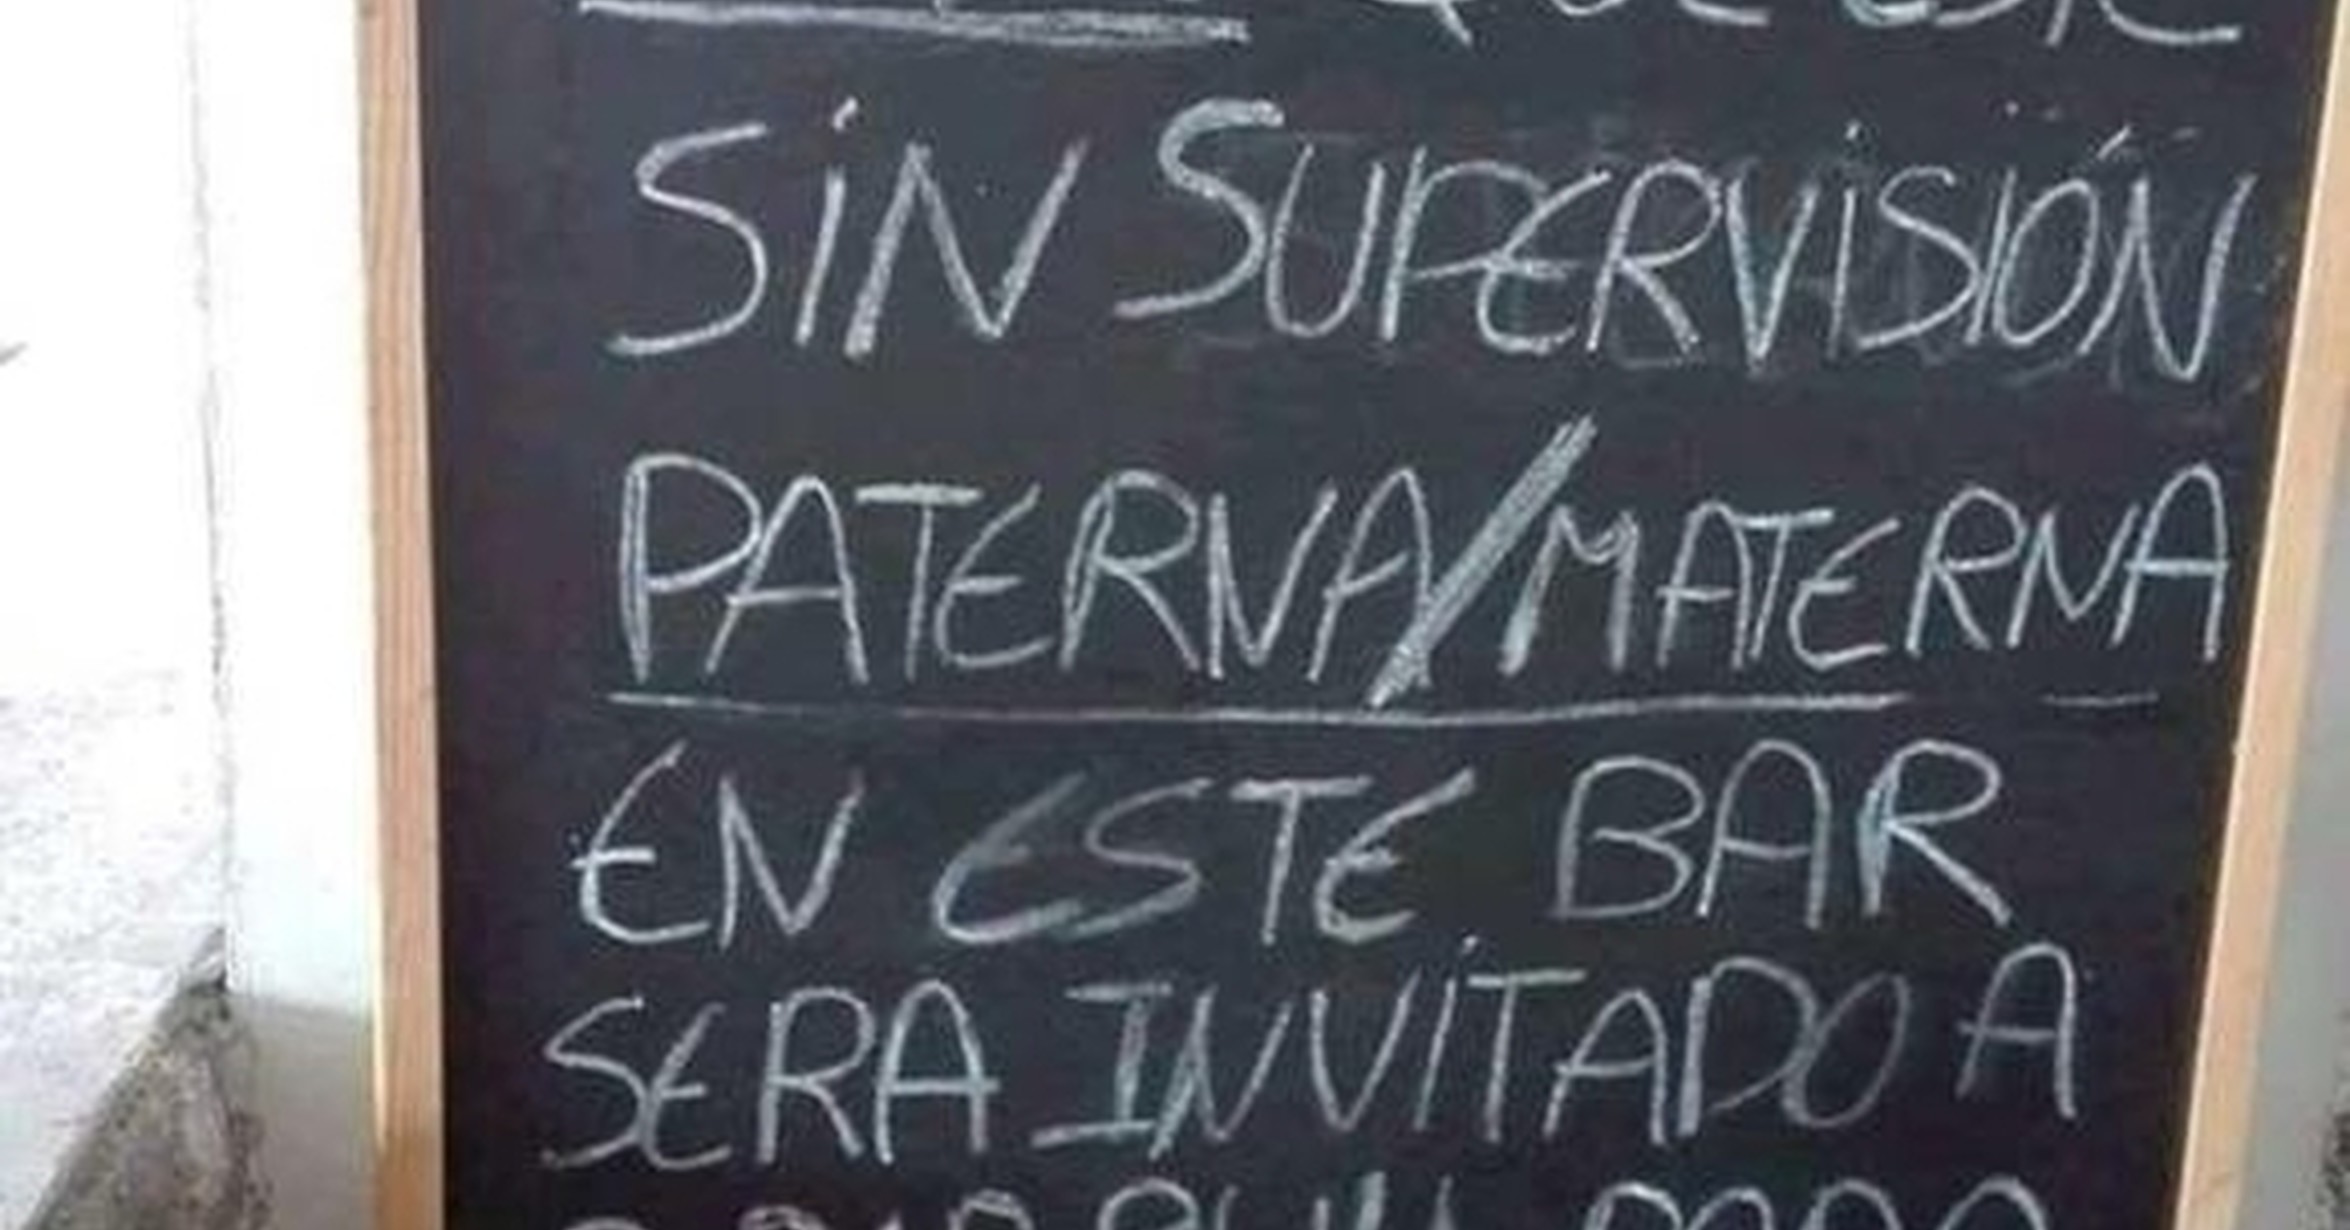 QUE ESTE
SIN SUPERVISIÓN
PATERNA/MATERNA
EN ESTE BAR
SERA INVITADO A